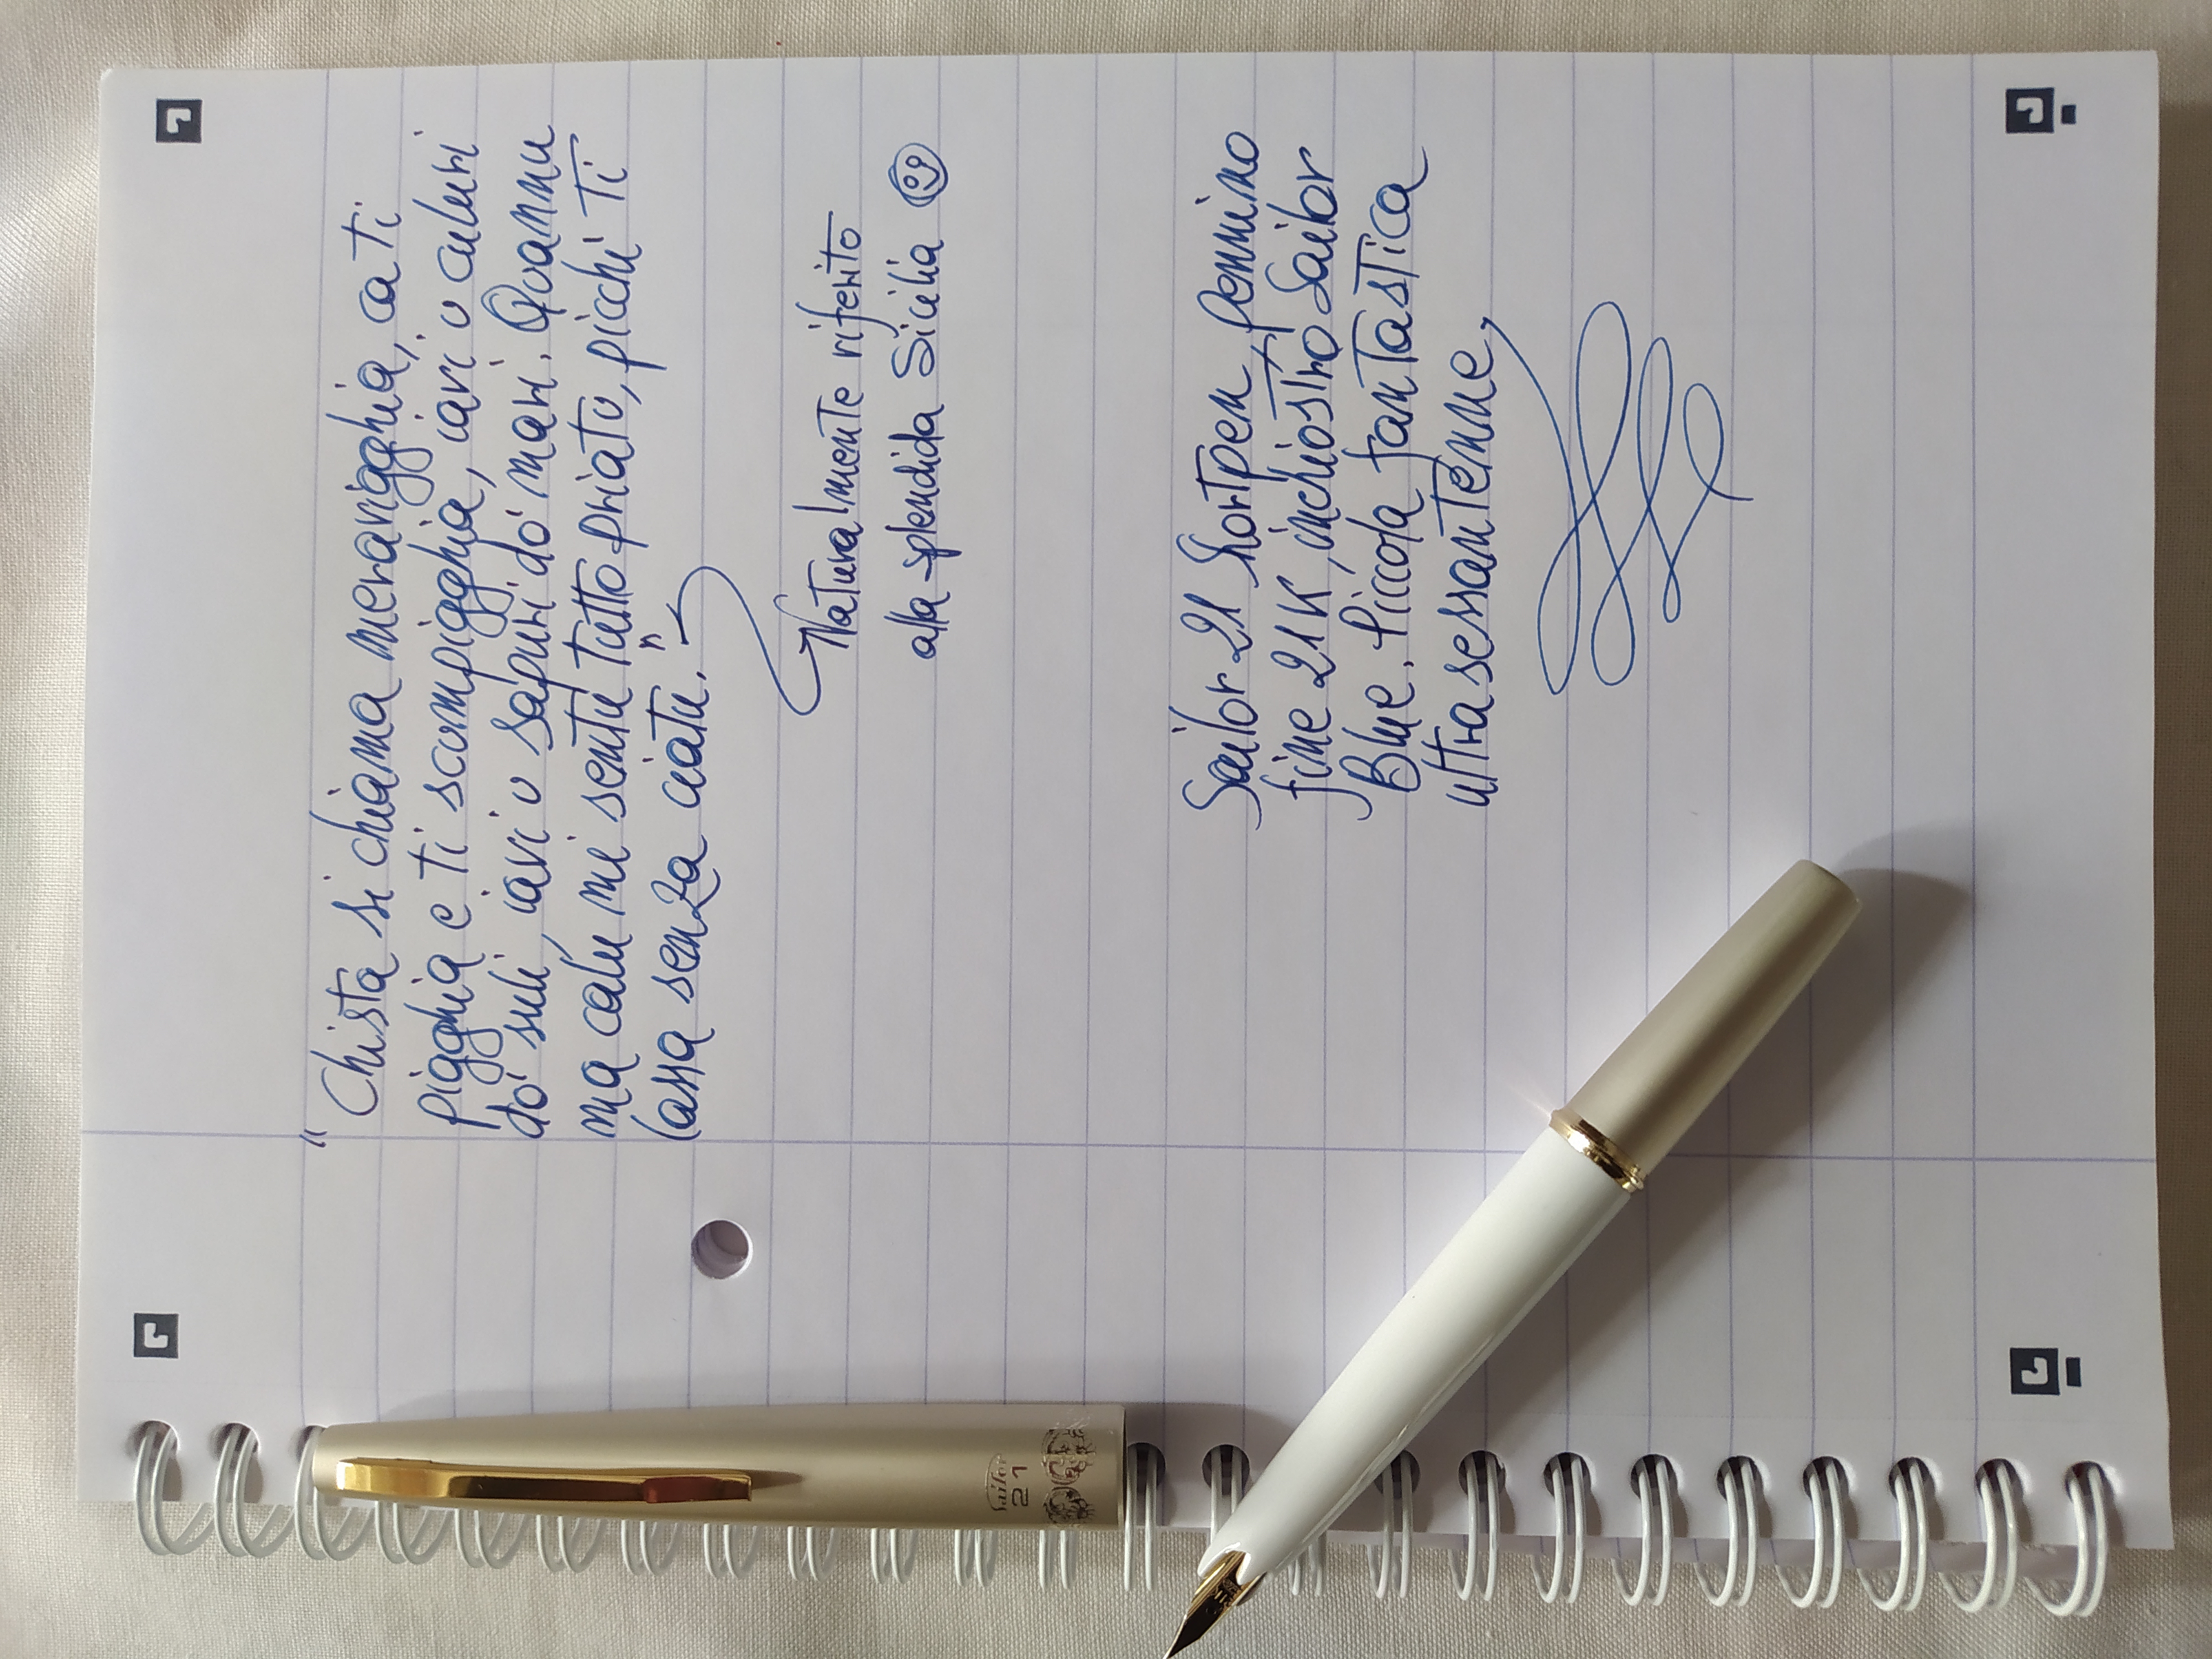 "Chista si chiama meravigghia, ca ti
pigghia e ti scumpigghia, iavi u culuri
dó suli, iavi u sapuri dó mari. Quannu
ma calu mi sentu tuttu priatu, picchì ti
lassa senza ciatu."
Naturalmente riferito
alla splendida Sicilia
Sailor 21 Shortpen pennino
fine 21K, inchiostro Sailor
Blue. Piccola fantastica
ultrasessantenne
Sailor
21